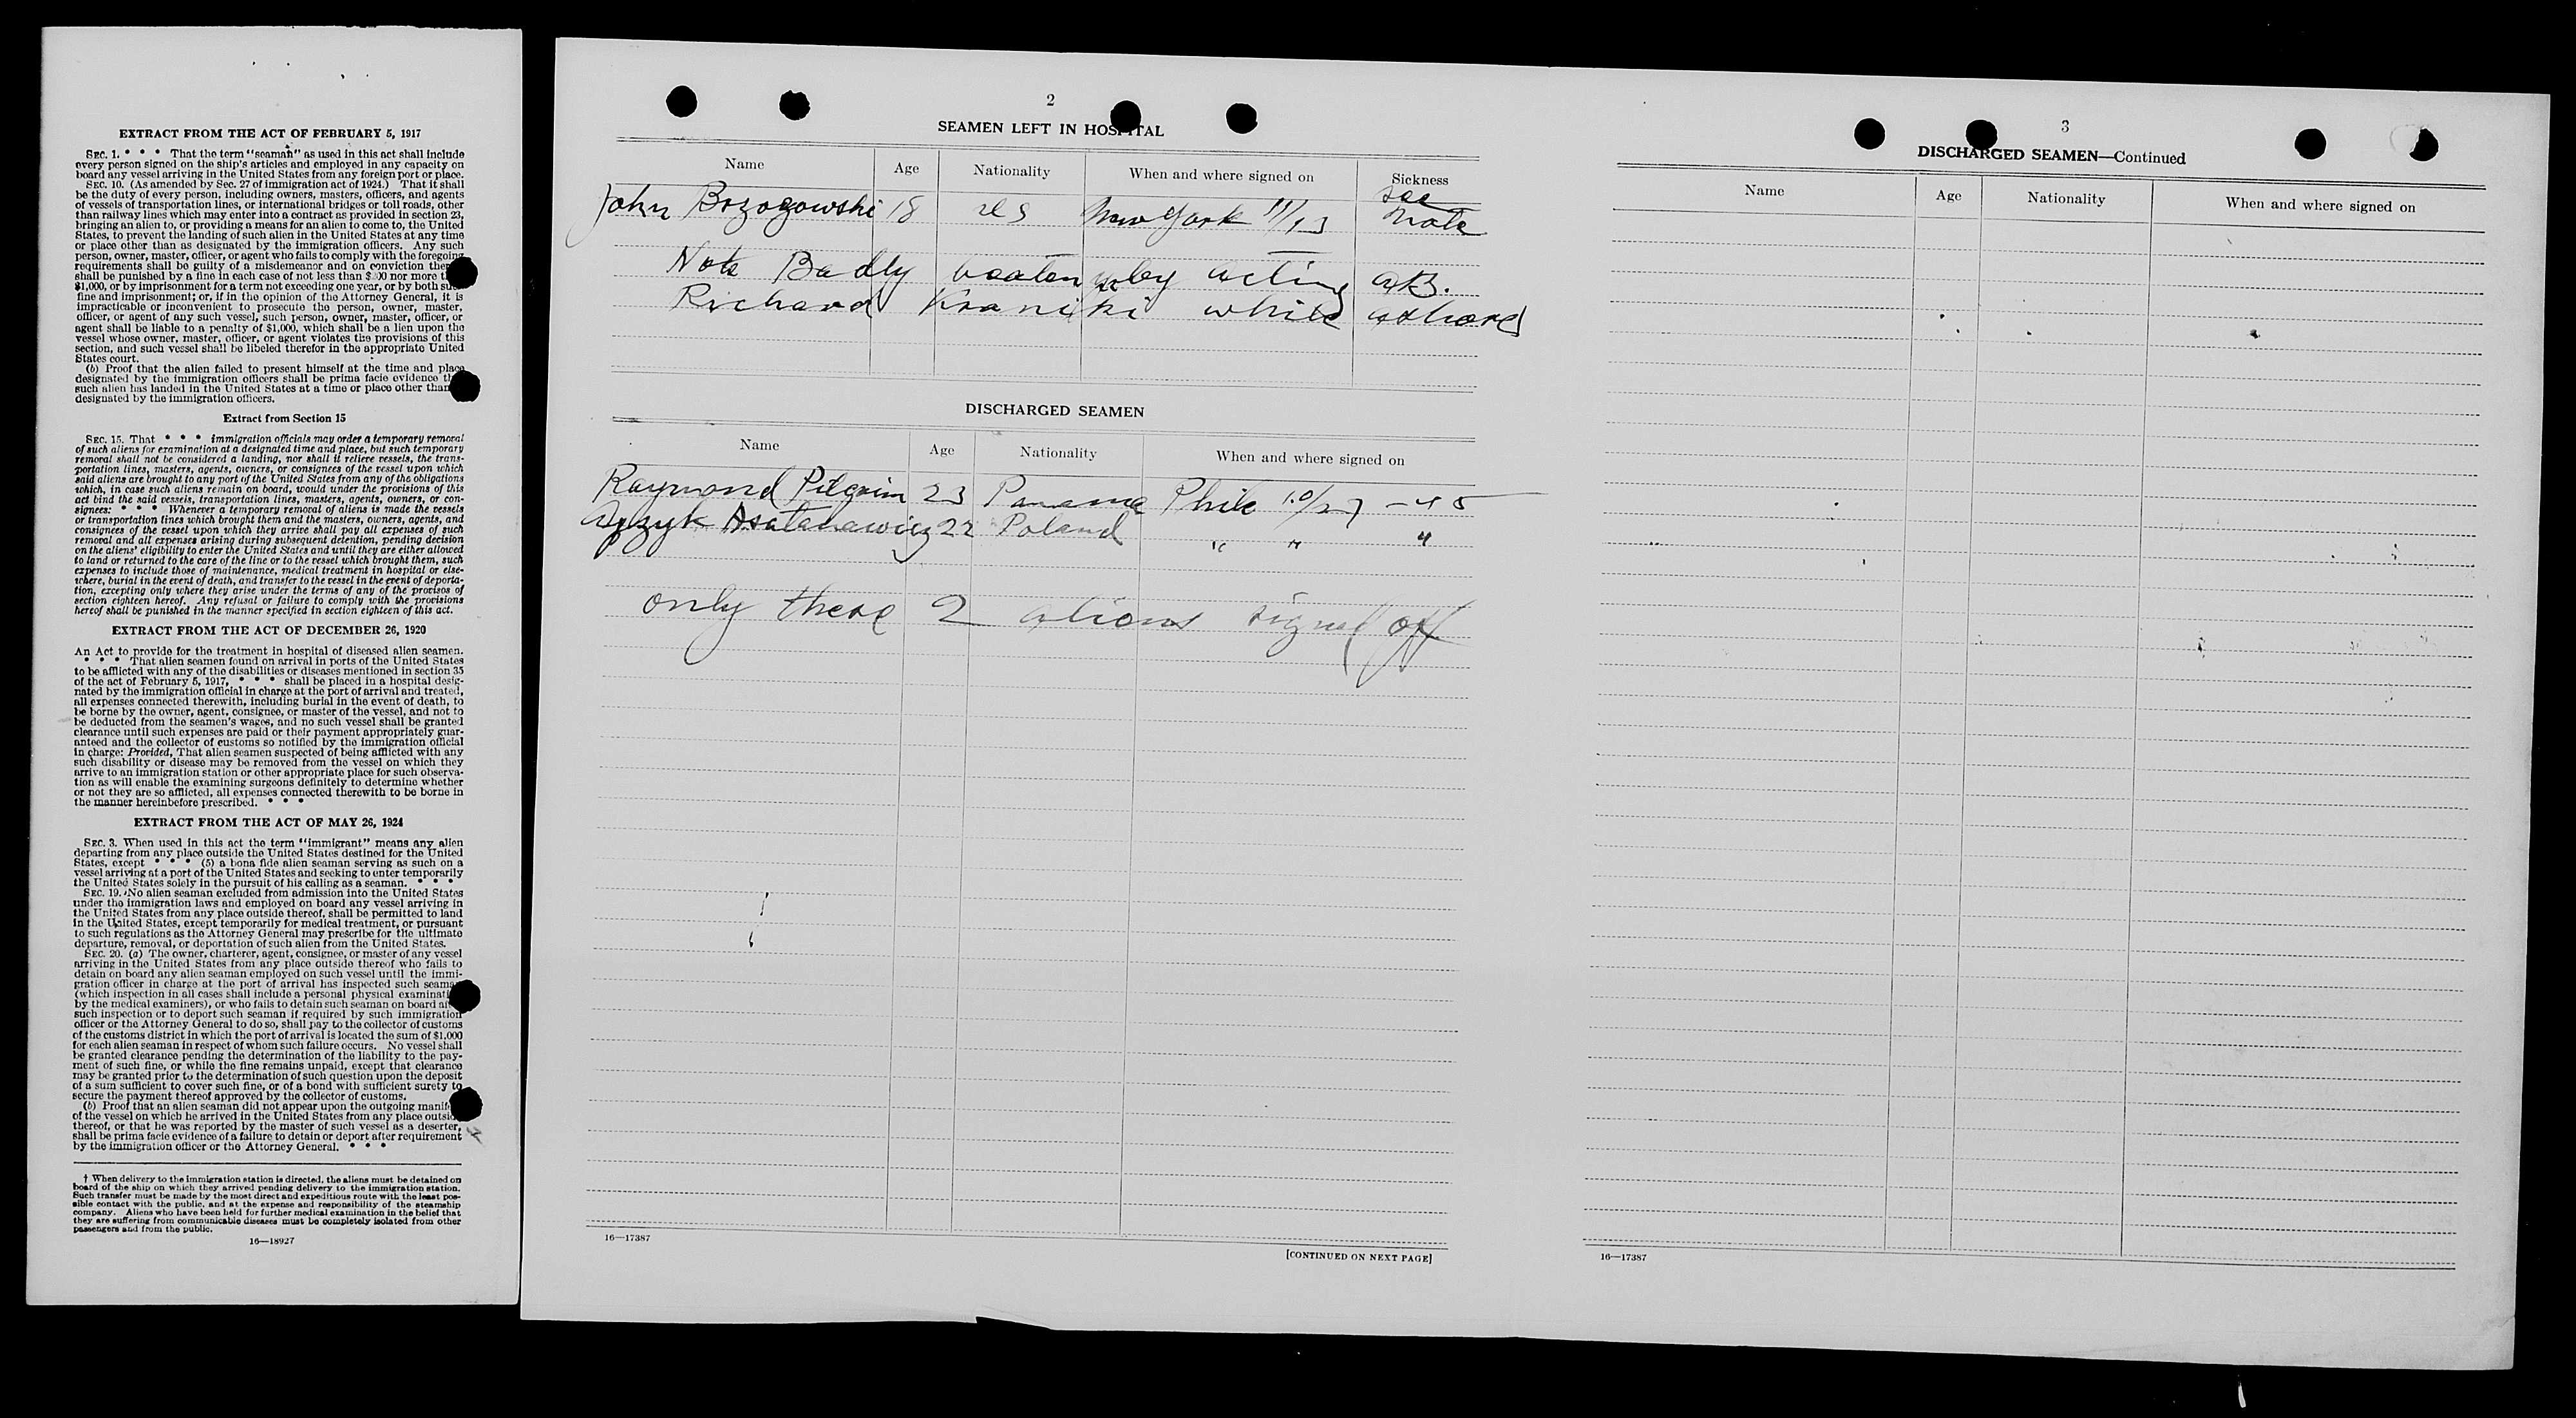 EXTRACT FROM THE ACT OF FEBRUARY 5, 1917
SEC. 1. * * * That the term "seaman" as used in this act shall include
every person signed on the ship's articles and employed in any capacity on
board any vessel arriving in the United States from any foreign port or place.
SEC. 10. (As amended by Sec. 27 of immigration act of 1924.) That it shall
be the duty of every person, including owners, masters, officers, and agents
of vessels of transportation lines, or international bridges or toll roads, other
than railway lines which may enter into a contract as provided in section 23,
bringing an alien to, or providing a means for an alien to come to, the United
States, to prevent the landing of such alien in the United States at any time
or place other than as designated by the immigration officers. Any such
person, owner, master, officer, or agent who fails to comply with the foregoing
requirements shall be guilty of a misdemeanor and on conviction
shall be punished by a fine in each case of not less than nor more
$1,000, or by imprisonment for a term not exceeding one year, or by both
fine and imprisonment; or, if in the opinion of the Attorney General, it is
impracticable or inconvenient to prosecute the person, owner, master,
officer, or agent of any such vessel, such person, owner, master, officer, or
agent shall be liable to a penalty of $1,000, which shall be a lien upon the
vessel whose owner, master, officer, or agent violates the provisions of this
section, and such vessel shall be libeled therefor in the appropriate United
States court.
(b) Proof that the alien failed to present himself at the time and place
designated by the immigration officers shall be prima facie evidence
such alien has landed in the United States at a time or place other than
designated by the immigration officers.
Extract from Section 15
SEC. 15. That * * * immigration officials may order a temporary removal
of such aliens for examination at a designated time and place, but such temporary
removal shall not be considered a landing, nor shall it relieve vessels, the trans-
portation lines, masters, agents, owners, or consignees of the vessel upon which
said aliens are brought to any port of the United States from any of the obligations
which, in case such aliens remain on board, would under the provisions of this
act bind the said vessels, transportation lines, masters, agents, owners, or con-
signees: * * * Whenever a temporary removal of aliens is made the vessels
or transportation lines which brought them and the masters, owners, agents, and
consignees of the vessel upon which they arrive shall pay all expenses of such
removal and all expenses arising during subsequent detention, pending decision
on the aliens' eligibility to enter the United States and until they are either allowed
to land or returned to the care of the line or to the vessel which brought them, such
expenses to include those of maintenance, medical treatment in hospital or else-
where, burial in the event of death, and transfer to the vessel in the event of deporta-
tion, excepting only where they arise under the terms of any of the provisos of
section eighteen hereof. Any refusal or failure to comply with the provisions
hereof shall be punished in the manner specified in section eighteen of this act.
EXTRACT FROM THE ACT OF DECEMBER 26, 1920
An Act to provide for the treatment in hospital of diseased alien seamen.
* * * That alien seamen found on arrival in ports of the United States
to be afflicted with any of the disabilities or diseases mentioned in section 35
of the act of February 5, 1917, * * * shall be placed in a hospital desig-
nated by the immigration official in charge at the port of arrival and treated,
all expenses connected therewith, including burial in the event of death, to
be borne by the owner, agent, consignee, or master of the vessel, and not to
be deducted from the seamen's wages, and no such vessel shall be granted
clearance until such expenses are paid or their payment appropriately guar-
anteed and the collector of customs so notified by the immigration official
in charge: Provided, That alien seamen suspected of being afflicted with any
such disability or disease may be removed from the vessel on which they
arrive to an immigration station or other appropriate place for such observa-
tion as will enable the examining surgeons definitely to determine whether
or not they are so afflicted, all expenses connected therewith to be borne in
the manner hereinbefore prescribed. * * *
EXTRACT FROM THE ACT OF MAY 26, 1924
SEC. 3. When used in this act the term "immigrant" means any alien
departing from any place outside the United States destined for the United
States, except * * * (5) a bona fide alien seaman serving as such on a
vessel arriving at a port of the United States and seeking to enter temporarily
the United States solely in the pursuit of his calling as a seaman. * * *
SEC. 19. No alien seaman excluded from admission into the United States
under the immigration laws and employed on board any vessel arriving in
the United States from any place outside thereof, shall be permitted to land
in the United States, except temporarily for medical treatment, or pursuant
to such regulations as the Attorney General may prescribe for the ultimate
departure, removal, or deportation of such alien from the United States.
SEC. 20. (a) The owner, charterer, agent, consignee, or master of any vessel
arriving in the United States from any place outside thereof who fails to
detain on board any alien seaman employed on such vessel until the immi-
gration officer in charge at the port of arrival has inspected such seaman
(which inspection in all cases shall include a personal physical
by the medical examiners), or who fails to detain such seaman on board
such inspection or to deport such seaman if required by such immigration
officer or the Attorney General to do so, shall pay to the collector of customs
of the customs district in which the port of arrival is located the sum of $1,000
for each alien seaman in respect of whom such failure occurs. No vessel shall
be granted clearance pending the determination of the liability to the pay-
ment of such fine, or while the fine remains unpaid, except that clearance
may be granted prior to the determination of such question upon the deposit
of a sum sufficient to cover such fine, or of a bond with sufficient surety to
secure the payment thereof approved by the collector of customs.
(b) Proof that an alien seaman did not appear upon the outgoing
of the vessel on which he arrived in the United States from any place
thereof, or that he was reported by the master of such vessel as a deserter,
shall be prima facie evidence of a failure to detain or deport after requirement
by the immigration officer or the Attorney General. * * *
† When delivery to the immigration station is directed, the aliens must be detained on
board of the ship on which they arrived pending delivery to the immigration station.
Such transfer must be made by the most direct and expeditious route with the least pos-
sible contact with the public, and at the expense and responsibility of the steamship
company. Aliens who have been held for further medical examination in the belief that
they are suffering from communicable diseases must be completely isolated from other
passengers and from the public.
16—18927
2
SEAMEN LEFT IN HOSPITAL
Name Age Nationality When and where signed on Sickness
John Brzozowski 18 US New York 11/13 see note
Note Badly beaten by acting AB.
Richard Kraniski while ashore
DISCHARGED SEAMEN
Name Age Nationality When and where signed on
Raymond Pilgrim 23 Panama Phila 10/27 -45
22 Poland " " "
only these 2 aliens signed off
16—17387
[CONTINUED ON NEXT PAGE]
3
DISCHARGED SEAMEN—Continued
Name Age Nationality When and where signed on
16—17387